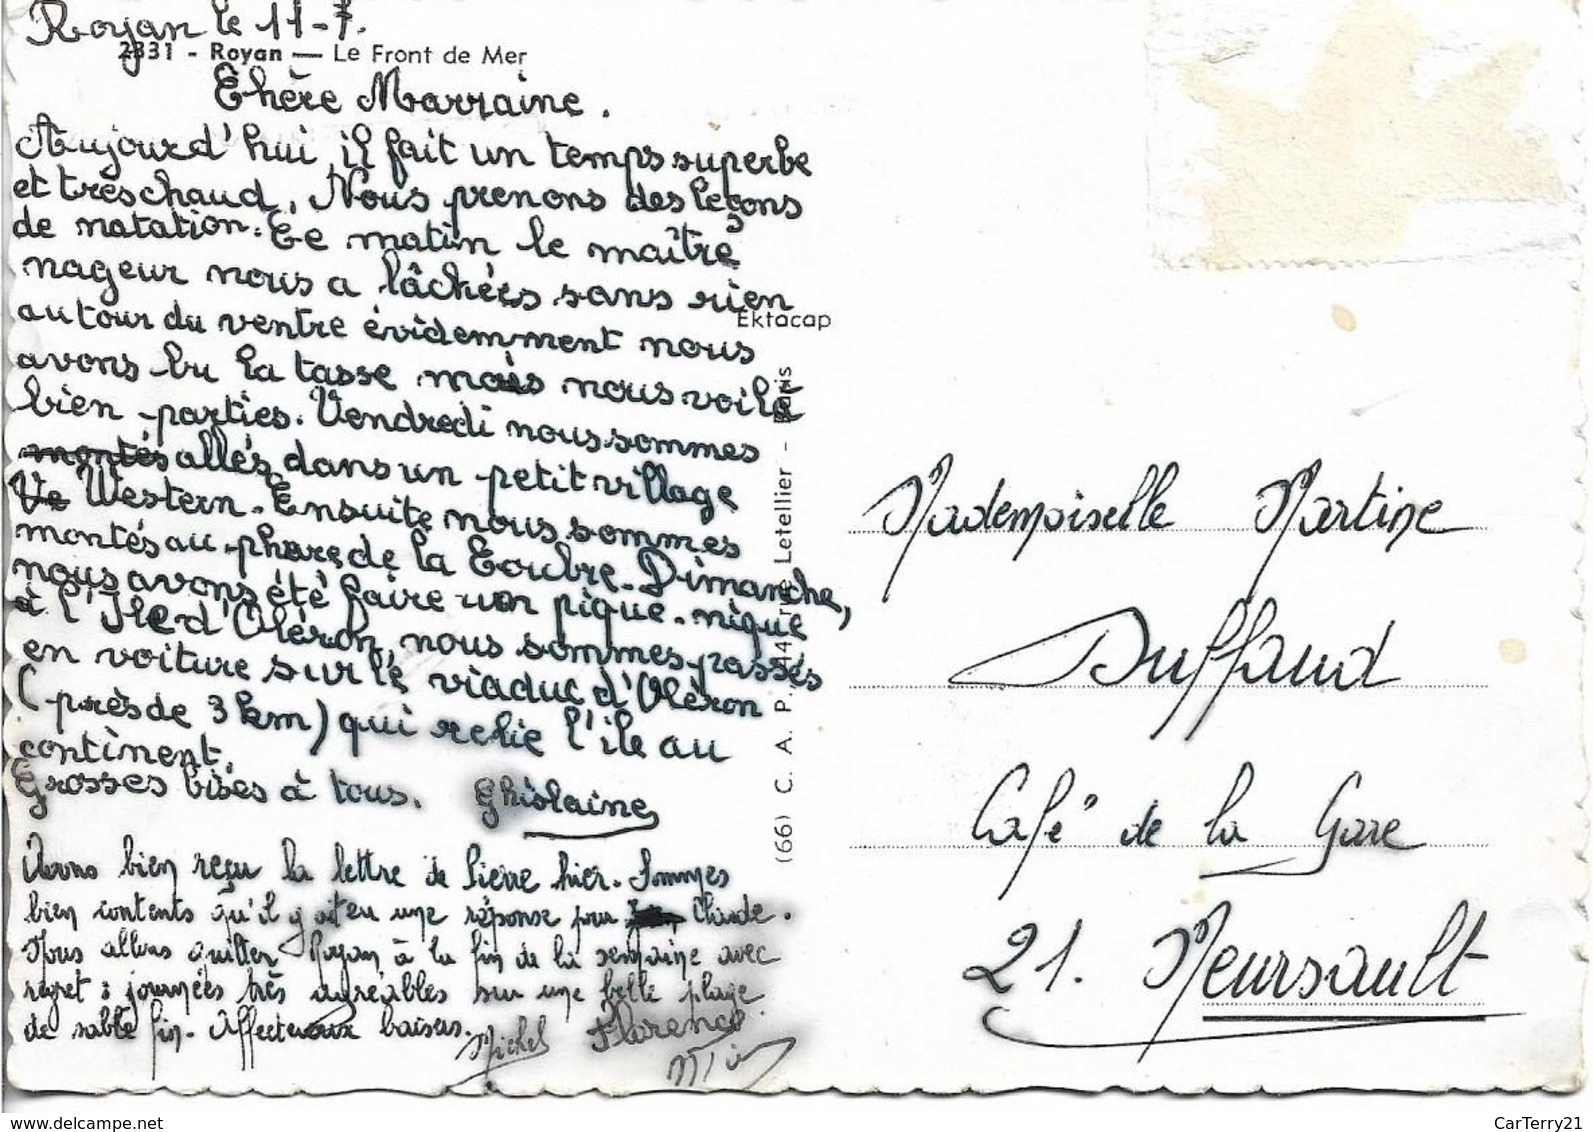 Royan le 11-7.
2331 - Royan — Le Front de Mer
Chère Marraine.
Aujourd'hui, il fait un temps superbe
et très chaud. Nous prenons des leçons
de natation. Ce matin le maître
nageur nous a lâchées sans rien
autour du ventre évidemment nous
avons bu la tasse mais nous voilà
bien parties. Vendredi nous sommes
montés allés dans un petit village
We Western. Ensuite nous sommes
montés au phare de la Coubre. Dimanche,
nous avons été faire un pique-nique
à l'Ile d'Oléron, nous sommes passés
en voiture sur le viaduc d'Oléron
(près de 3 km) qui relie l'île au
continent.
Grosses bises à tous. Ghislaine
Avons bien reçu la lettre de Pierre hier. Sommes
bien contents qu'il y ait eu une réponse pour Claude.
Nous allons quitter Royan à la fin de la semaine avec
regret : journées très agréables sur une belle plage
de sable fin. Affectueux baisers. Michel Florence
Ektacap
(66) C. A. P., 44 rue Letellier - Paris
Mademoiselle Martine
Duffaud
Café de la Gare
21. Meursault
www.delcampe.net
CarTerry21